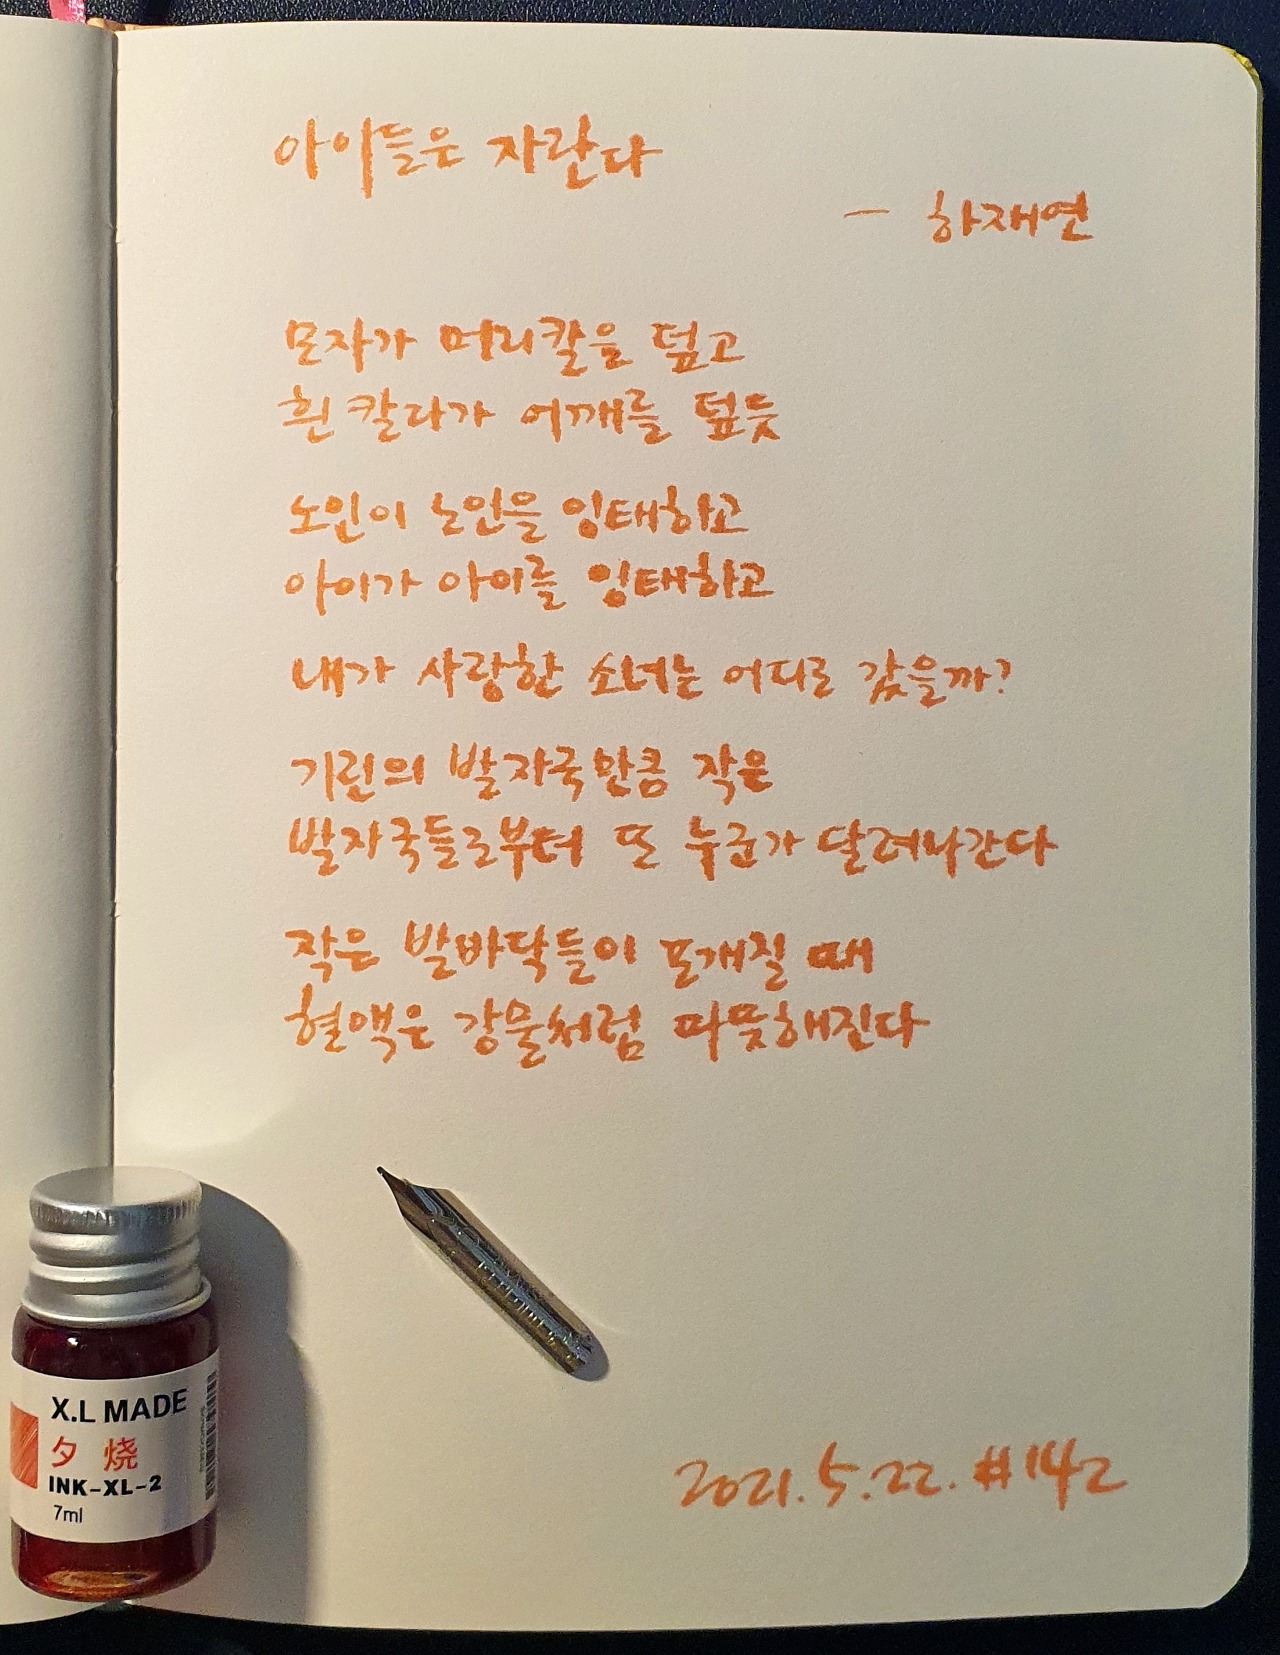 아이들은 자란다
- 하재연
모자가 머리칼을 덮고
흰 칼라가 어깨를 덮듯
노인이 노인을 잉태하고
아이가 아이를 잉태하고
내가 사랑한 소녀는 어디로 갔을까?
기린의 발자국만큼 작은
발자국들로부터 또 누군가 달려나간다
작은 발바닥들이 포개질 때
혈액은 강물처럼 따뜻해진다
X.L MADE
夕 烧
INK-XL-2
7ml
2021.5.22. #142